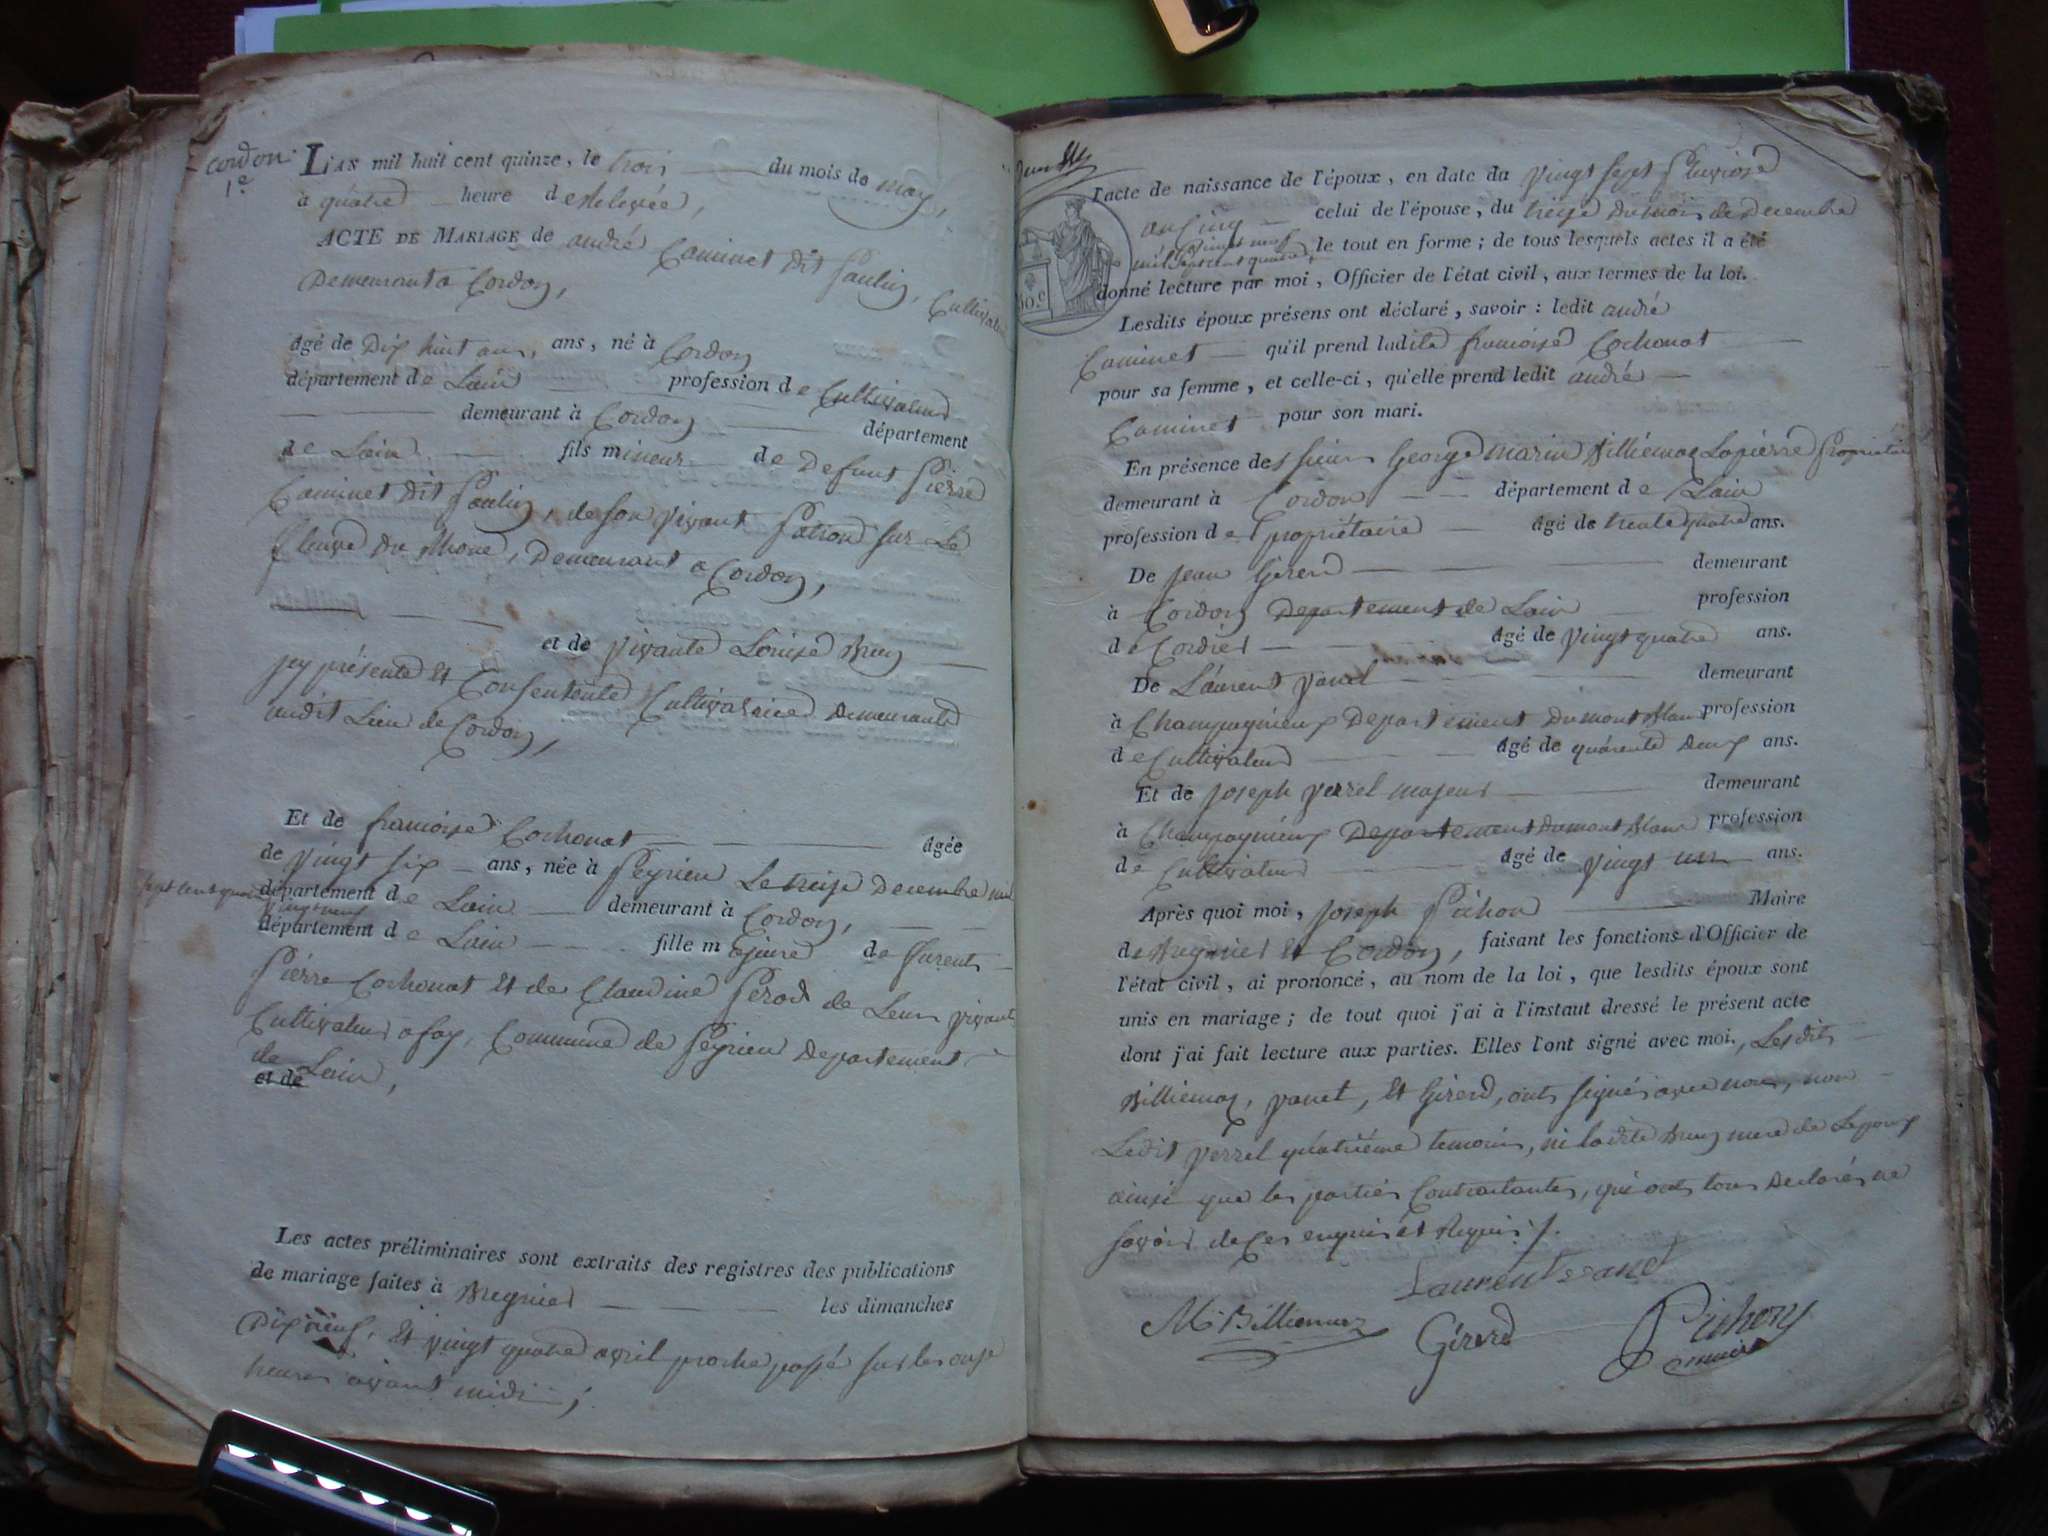 Cordon
1e
L'AN mil huit cent quinze, le trois du mois de may,
à quatre heure de Relevée,
ACTE DE MARIAGE de andré Caminet dit Paulin, Cultivateur
Demeurant a Cordon,
âgé de Dix huit ans, ans, né à Cordon
département de Lain profession de Cultivateur
demeurant à Cordon département
de Lain fils mineur de Defunt Pierre
Caminet dit Paulin, de son vivant Patron sur Le
fleuve du Rhone, Demeurant a Cordon,
et de vivante Louise Brun
jcy présente et Consentente Cultivatrice Demeurante
audit Lieu de Cordon,
Et de francoise Cochonat âgée
de vingt six ans, née à Peyrieu Le treize Decembre mil
sept cent quatre
vingt neuf
département de Lain demeurant à Cordon,
département de Lain fille majeure de Parents
Pierre Cochonat et de Claudine Perod de Leur vivant
Cultivateurs a fay, Commune de Peyrieu Departement
de Lain,
et de
Les actes préliminaires sont extraits des registres des publications
de mariage faites à Bregnier les dimanches
Dix neuf, et vingt quatre avril proche passé sur les onze
heures avant midi ;
l'acte de naissance de l'époux, en date du vingt sept Pluviose
an cinq celui de l'épouse, du treize du mois de Decembre
mil sept cent quatre vingt neuf, le tout en forme ; de tous lesquels actes il a été
donné lecture par moi, Officier de l'état civil, aux termes de la loi.
Lesdits époux présens ont déclaré, savoir : ledit andré
Caminet qu'il prend ladite francoise Cochonat
pour sa femme, et celle-ci, qu'elle prend ledit andré
Caminet pour son mari.
En présence des sieurs George marin Billiemaz Lapierre Propriétaire
demeurant à Cordon département de Lain
profession de Propriétaire âgé de trente quatre ans.
De Jean Girerd demeurant
à Cordon Departement de Lain profession
de Cordier âgé de vingt quatre ans.
De Laurent yanet demeurant
à Champagnieux Departement du mont Blanc profession
de Cultivateur âgé de quarente Deux ans.
Et de Joseph yerrel majeur demeurant
à Champagnieux Departement du mont Blanc profession
de Cultivateur âgé de vingt un ans.
Après quoi moi, Joseph Pichon Maire
de Bregnier et Cordon, faisant les fonctions d'Officier de
l'état civil, ai prononcé, au nom de la loi, que lesdits époux sont
unis en mariage ; de tout quoi j'ai à l'instant dressé le présent acte
dont j'ai fait lecture aux parties. Elles l'ont signé avec moi, Les dits
Billiemaz, yanet, et Girerd, ont signés avec nous, non
Ledit yerrel quatrième temoin, ni ladite Brun mere de Lepoux
ainsi que les parties Contractantes, qui ont tous Declarés ne
savoir de ce enquis et Requis ./.
Laurent
M. Billiemaz
Girerd
Pichon
maire